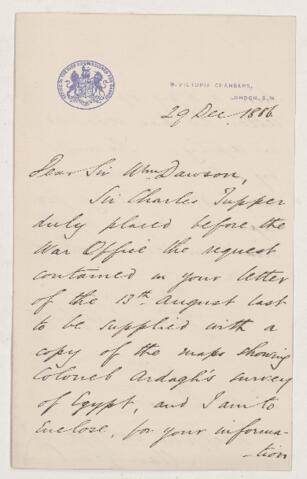 9, VICTORIA CHAMBERS,
LONDON, S.W.
29 Dec. 1886
Dear Sir Wm Dawson,
Sir Charles Tupper
duly placed before the
War Office the request
contained in your letter
of the 13th August last
to be supplied with a
copy of the maps showing
Colonel Ardagh's survey
of Egypt, and I am to
enclose, for your informa-
-tion